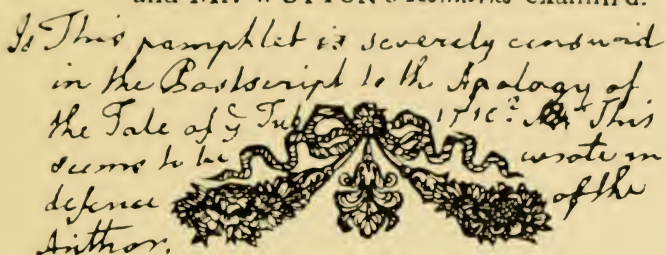 and Mr. WOTTON's Remarks examin'd.
Is This pamphlet is severely censured
in the Postscript to the Apology of
the Tale of ye Tub 1710? This
seems to be wrote in
defence of the
Author.